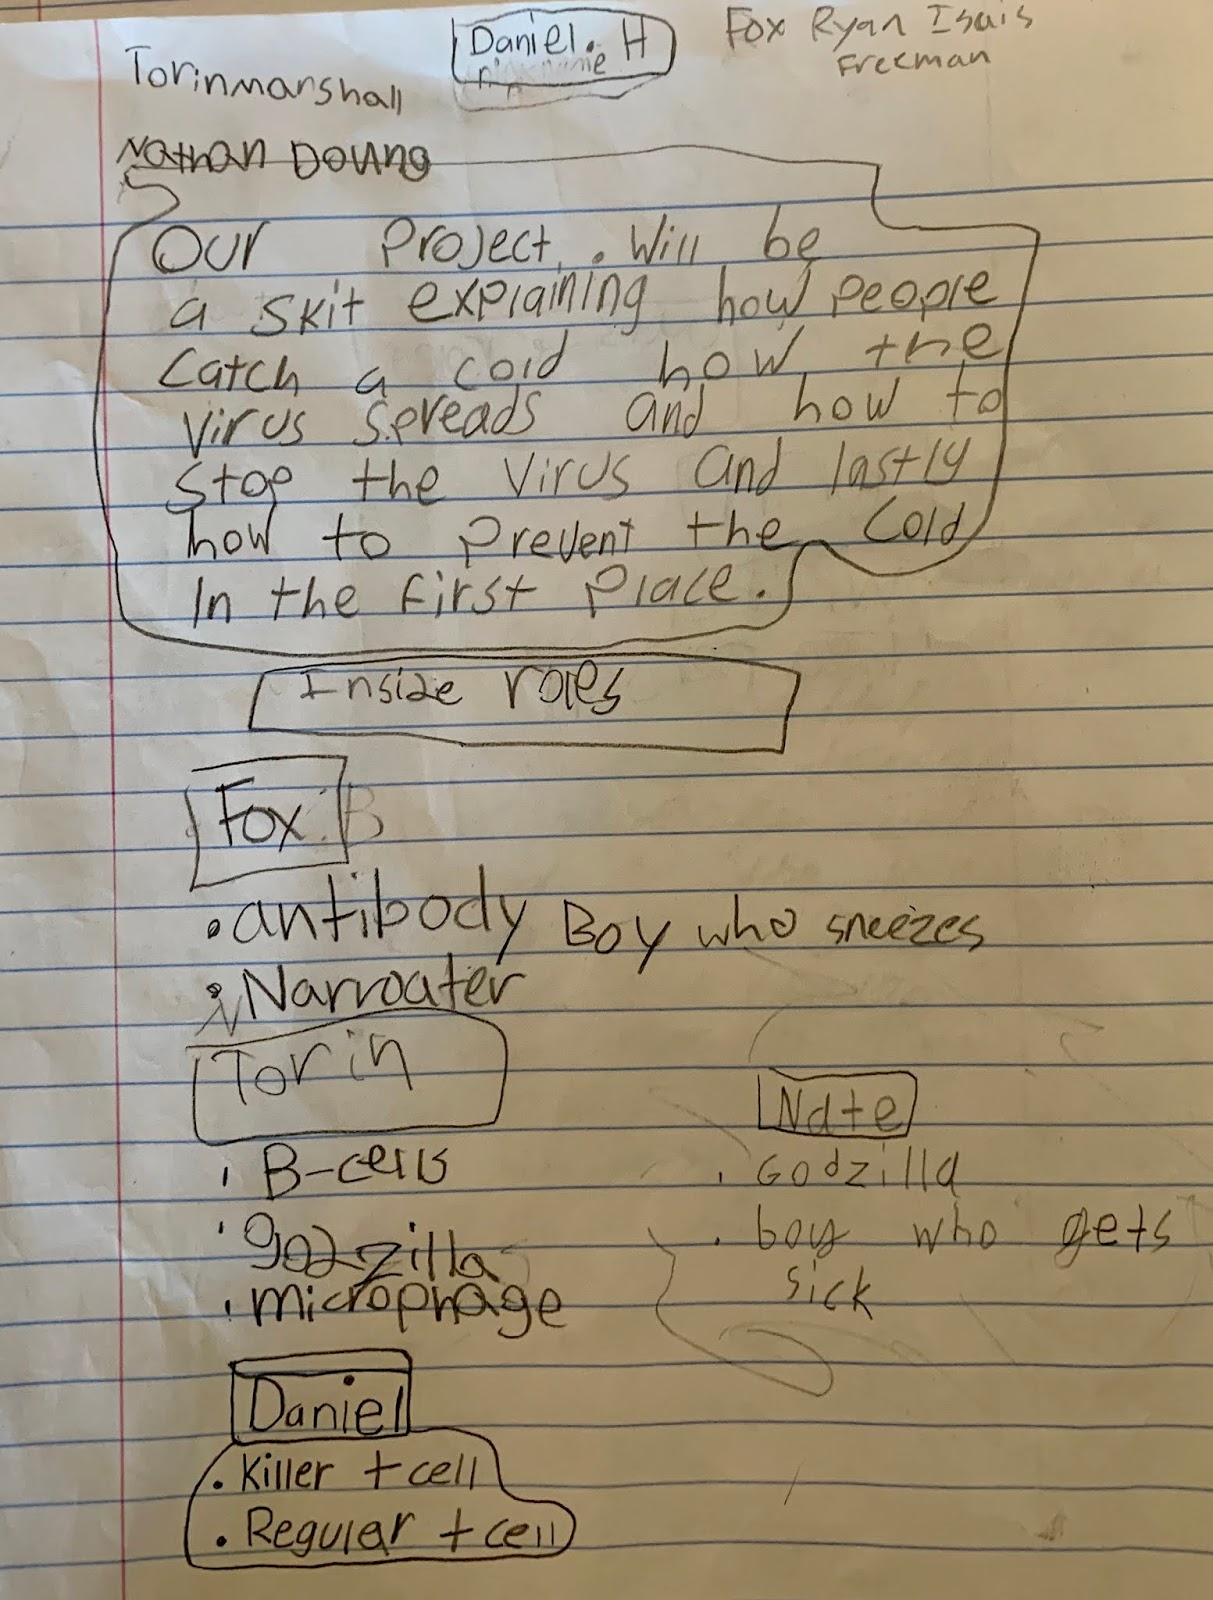 Daniel. H
Fox Ryan Isais
Freeman
Torinmarshall
Nathan Doung
Our Project. Will be
a skit explaining how people
Catch a cold how the
Virus spreads and how to
Stop the Virus and lastly
how to Prevent the Cold
In the first Place.
Inside roles
Fox B
• antibody Boy who sneezes
• Narroater
Torin
• B-cells
• godzilla
• microphage
Nate
• Godzilla
• boy who gets
sick
Daniel
• Killer t cell
• Regular t cell